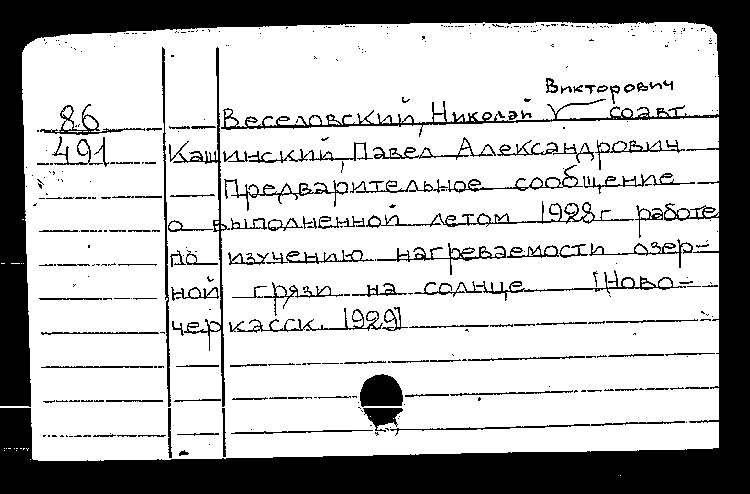 Викторович
86 Веселовский, Николай соавт.
491 Кашинский, Павел Александрович
Предварительное сообщение
о выполненной летом 1928 г. работе
по изучению нагреваемости озер-
ной грязи на солнце. [Ново-
черкасск. 1929]